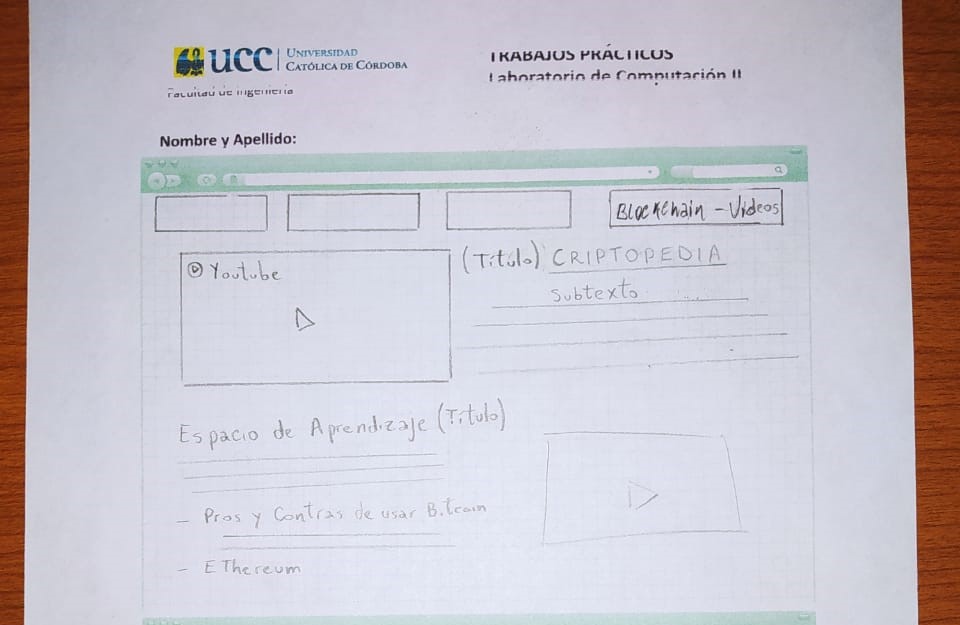 UCC
UNIVERSIDAD
CATÓLICA DE CÓRDOBA
TRABAJOS PRÁCTICOS
Laboratorio de Computación II
Facultad de Ingeniería
Nombre y Apellido:
Blockchain - Videos
Youtube
(Título) CRIPTOPEDIA
Subtexto
Espacio de Aprendizaje (Título)
- Pros y Contras de usar Bitcoin
- EThereum